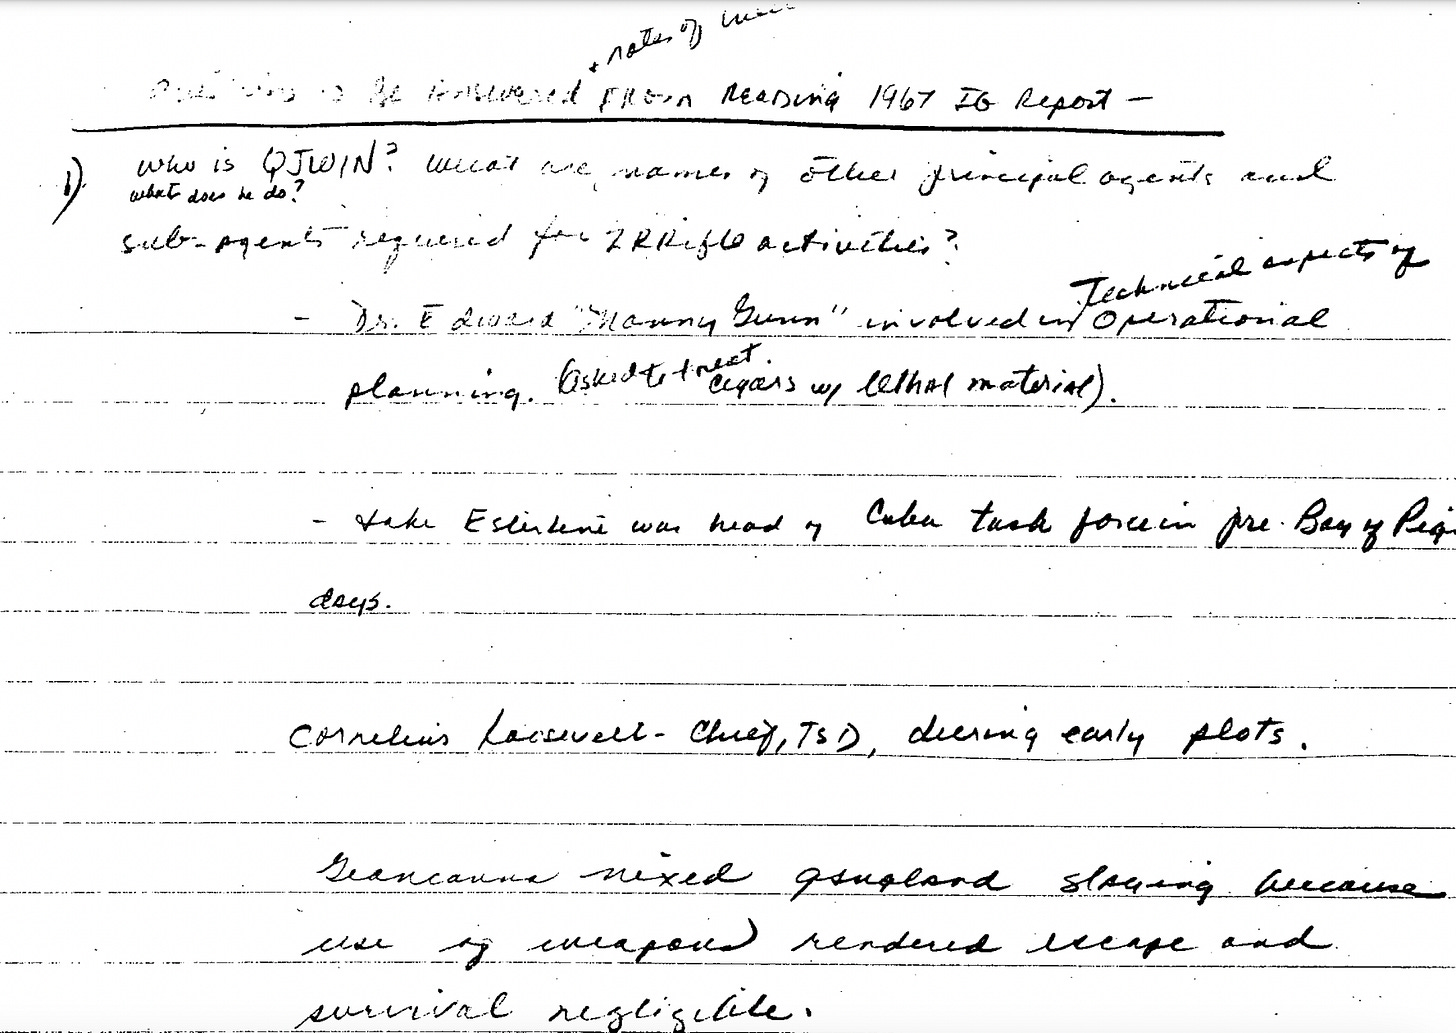 + notes of
Questions to Be Answered From Reading 1967 IG Report —
1) who is QJWIN? what are names of other principal agents and
what does he do?
sub-agents required for ZRRifle activities?
Technical aspects of
- Dr. Edward "Manny Gunn" involved in Operational
planning. (asked to treat cigars w/ lethal material).
- Jake Esterline was head of Cuba task force in pre-Bay of Pigs
days.
Cornelius Roosevelt - Chief, TSD, during early plots.
Giancanna nixed gangland slaying because
use of weapons rendered escape and
survival negligible.